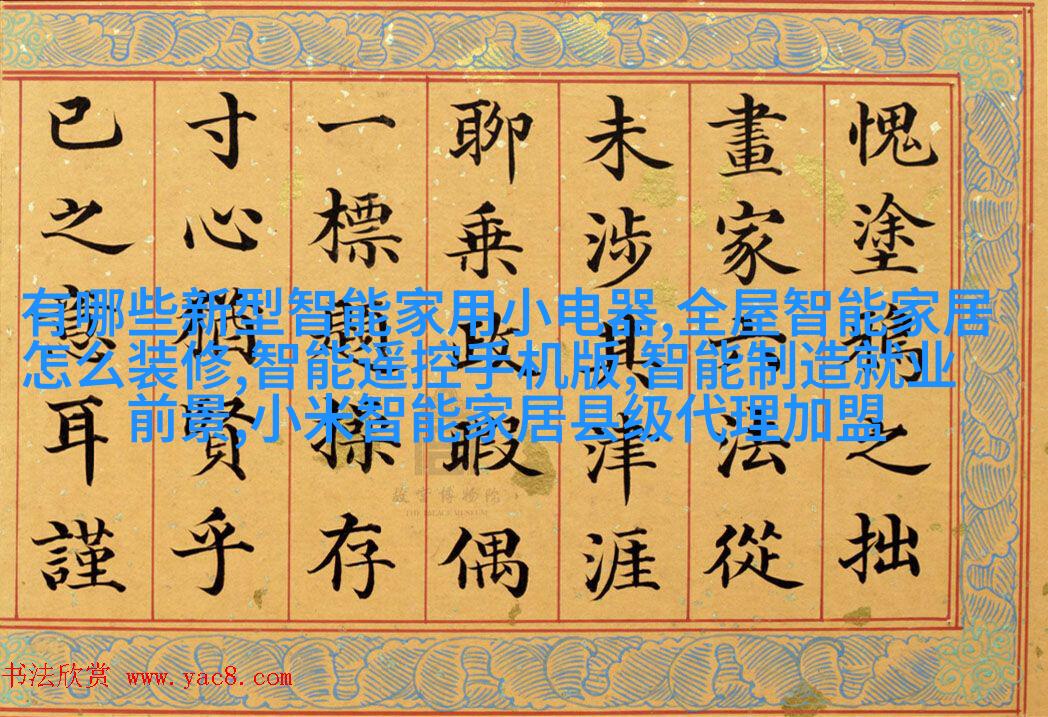 愧塗鴉之拙
畫家六法從
未涉其津涯
聊乘政暇偶
一標操存
寸心猶賢乎
已之意耳謹
有哪些新型智能家用小电器,全屋智能家居
怎么装修,智能遥控手机版,智能制造就业
前景,小米智能家居县级代理加盟
故宫博物院
THE PALACE MUSEUM
书法欣赏 www.yac8.com